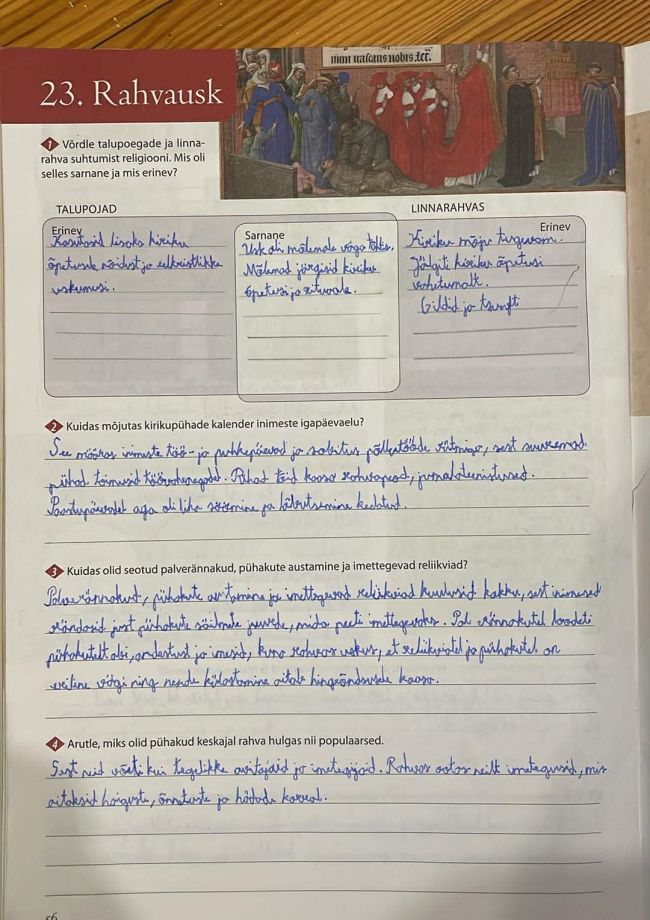 num nascens nobis
23. Rahvausk
1 Võrdle talupoegade ja linna-
rahva suhtumist religiooni. Mis oli
selles sarnane ja mis erinev?
TALUPOJAD
Erinev
Kasutasid lisaks kiriku
õpetusele nõidust ja eelkristlikke
uskumusi.
Sarnane
Usk oli mõlemale väga tähtis.
Mõlemad järgisid kiriku
õpetusi ja rituaale.
LINNARAHVAS
Erinev
Kiriku mõju tugevam.
Jälgiti kiriku õpetusi
rohkem
Gildid ja tsunfti
2 Kuidas mõjutas kirikupühade kalender inimeste igapäevaelu?
See määras inimeste töö- ja puhkepäevad ja sobitus põllutööde rütmiga, sest suuremad
pühad toimusid töövaheaegadel. Pühad tõid kaasa rahvapeod, jumalateenistused.
Paastupäevadel aga oli liha söömine ja lõbutsemine keelatud.
3 Kuidas olid seotud palverännakud, pühakute austamine ja imettegevad reliikviad?
Palverännakud, pühakute austamine ja imettegevad reliikviad kuulusid kokku, sest inimesed
rändasid just pühakute säilmete juurde, mida peeti imettegevaks. Pal verännakutel loodeti
pühakutelt abi, andestust ja imesid, kuna rahvas uskus, et reliikviatel ja pühakutel on
eriline vägi ning nende külastamine aitab hingeõndsusele kaasa.
4 Arutle, miks olid pühakud keskajal rahva hulgas nii populaarsed.
Sest neid võeti kui tegelikke aitajaid ja imetegijaid. Rahvas ootas neilt imetegusid, mis
aitaksid haiguste, õnnetuste ja hädade korral.
56